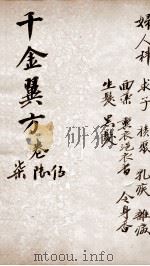 婦人科
求子 乳疾 雜病
面藥 熏衣浥衣香 令身香
生髮 黑髮
千金翼方卷 伍
陆
柒
mtoou.info